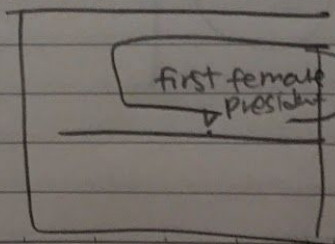 first female
president